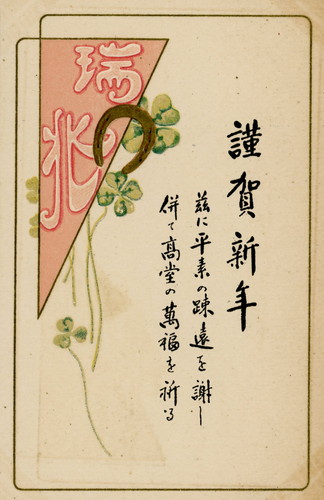 謹賀新年
茲に平素の疎遠を謝し
併て高堂の萬福を祈る
瑞兆